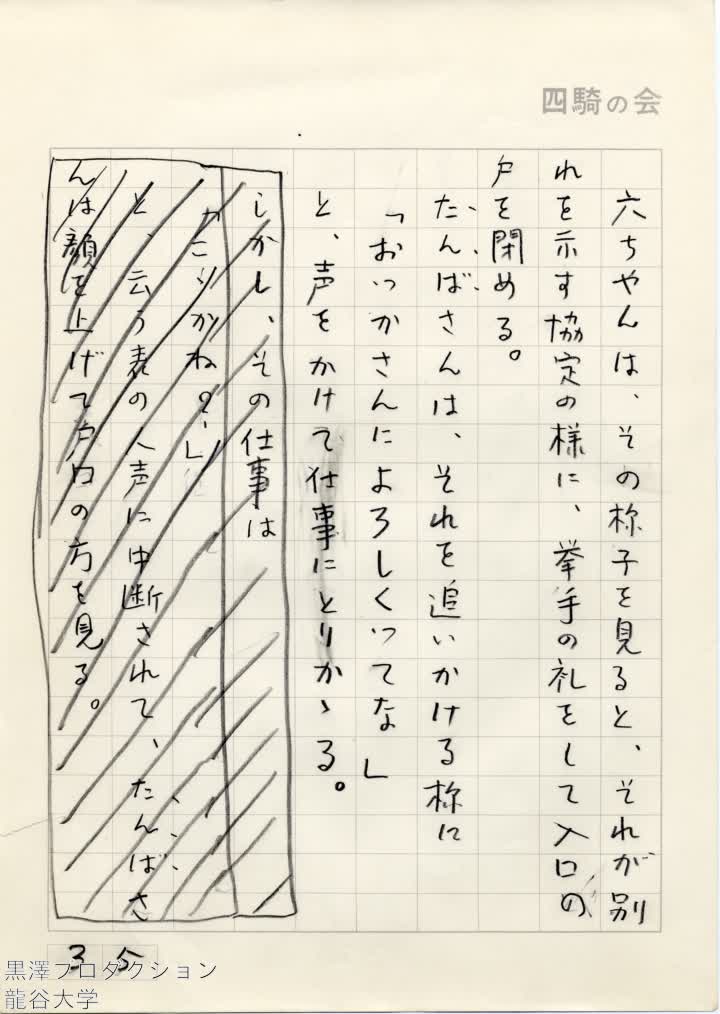 四騎の会
六ちやんは、その祢子を見ると、それが別
れを示す協定の様に、挙手の礼をして入口の
戸を閉める。
たんばさんは、それを追いかける様に
「おっかさんによろしくつてな」
と、声をかけて仕事にとりかゝる。
しかし、その仕事は
と、云う表の人声に中断されて、たんばさ
んは顔を上げて戸口の方を見る。
35
黒澤プロダクション
龍谷大学